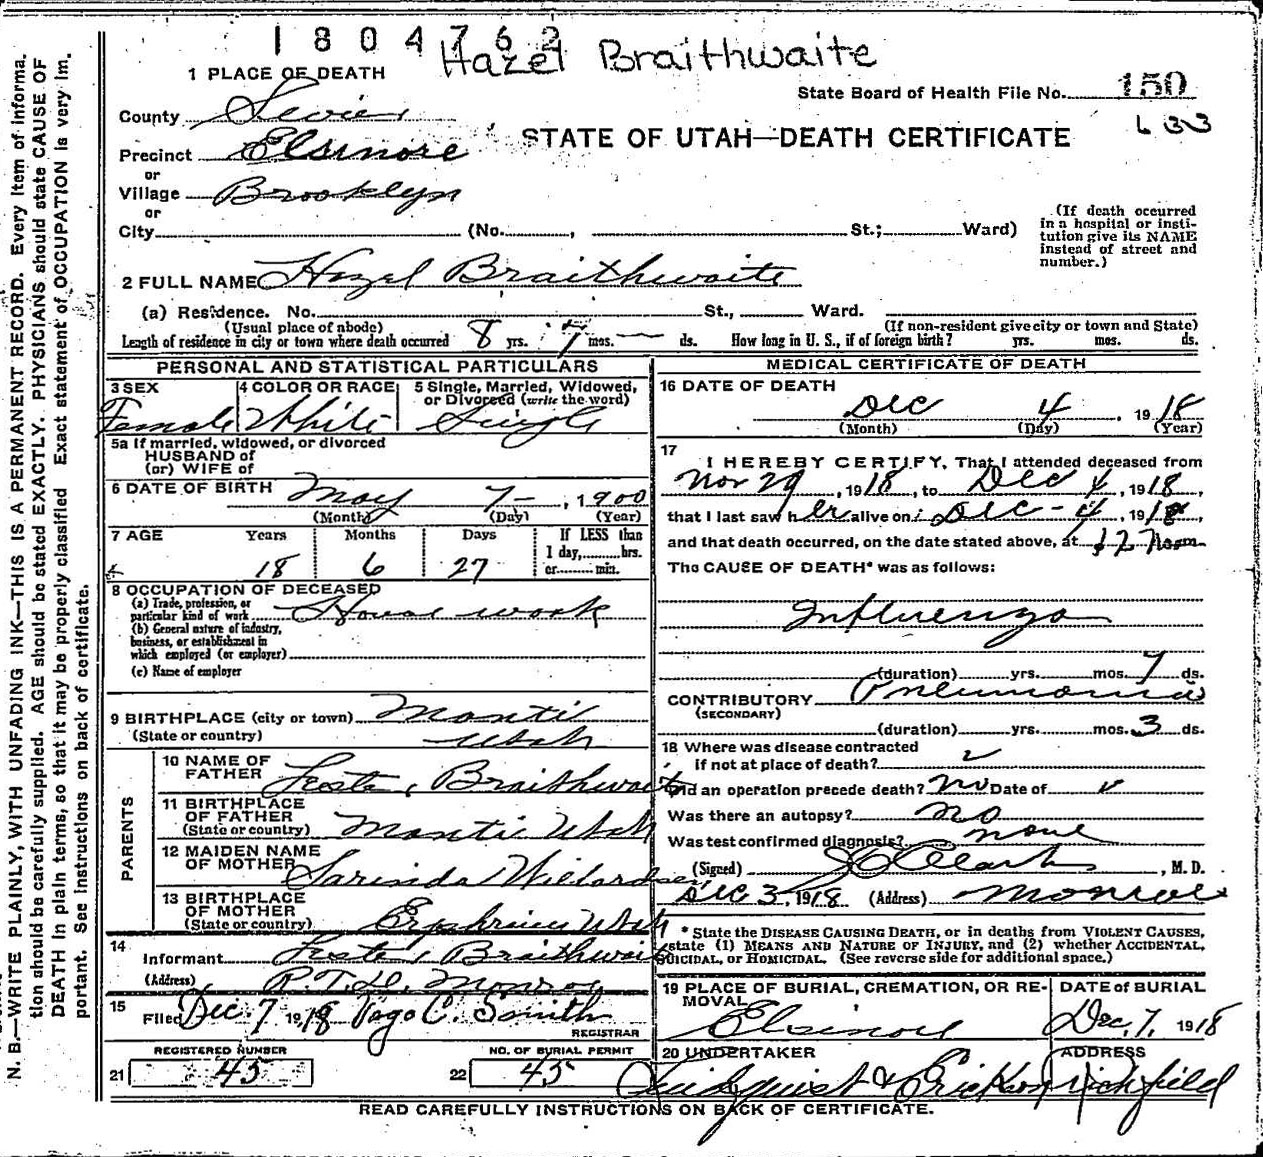 1804762
Hazel Braithwaite
1 PLACE OF DEATH
State Board of Health File No. 150
633
County Sevier
STATE OF UTAH—DEATH CERTIFICATE
Precinct Elsinore
or
Village Brooklyn
or
City (No. , St.; Ward)
(If death occurred
in a hospital or insti-
tution give its NAME
instead of street and
number.)
2 FULL NAME Hazel Braithwaite
(a) Residence. No. St., Ward.
(Usual place of abode) (If non-resident give city or town and State)
Length of residence in city or town where death occurred 8 yrs. 7 mos. — ds. How long in U. S., if of foreign birth? yrs. mos. ds.
PERSONAL AND STATISTICAL PARTICULARS
3 SEX 4 COLOR OR RACE 5 Single, Married, Widowed,
or Divorced (write the word)
Female White Single
5a If married, widowed, or divorced
HUSBAND of
(or) WIFE of
6 DATE OF BIRTH May 7— , 1900
(Month) (Day) (Year)
7 AGE Years Months Days If LESS than
1 day, hrs.
18 6 27 or min.
8 OCCUPATION OF DECEASED
(a) Trade, profession, or
particular kind of work House work
(b) General nature of industry,
business, or establishment in
which employed (or employer)
(c) Name of employer
9 BIRTHPLACE (city or town) Manti
(State or country) Utah
PARENTS
10 NAME OF
FATHER Braithwaite
11 BIRTHPLACE
OF FATHER
(State or country) Manti Utah
12 MAIDEN NAME
OF MOTHER Sarinda Willardsen
13 BIRTHPLACE
OF MOTHER
(State or country) Ephriem Utah
14
Informant Braithwaite
(Address) Monroe
15
Filed Dec. 7 1918 Pago C. Smith
REGISTRAR
REGISTERED NUMBER NO. OF BURIAL PERMIT
21 45 22 45
MEDICAL CERTIFICATE OF DEATH
16 DATE OF DEATH
Dec 4 , 1918
(Month) (Day) (Year)
17
I HEREBY CERTIFY, That I attended deceased from
Nov 29 , 1918 , to Dec 4 , 1918 ,
that I last saw her alive on Dec - 4 , 1918 ,
and that death occurred, on the date stated above, at 12 Noon
The CAUSE OF DEATH* was as follows:
Influenza
(duration) yrs. mos. 7 ds.
CONTRIBUTORY Pneumonia
(SECONDARY)
(duration) yrs. mos. 3 ds.
18 Where was disease contracted
if not at place of death?
Did an operation precede death? No Date of
Was there an autopsy? no
Was test confirmed diagnosis? none
(Signed) Clark , M. D.
Dec 3 , 1918 (Address) Monroe
* State the DISEASE CAUSING DEATH, or in deaths from VIOLENT CAUSES,
state (1) MEANS AND NATURE OF INJURY, and (2) whether ACCIDENTAL,
SUICIDAL, or HOMICIDAL. (See reverse side for additional space.)
19 PLACE OF BURIAL, CREMATION, OR RE-
MOVAL
Elsinore
DATE of BURIAL
Dec, 7, 1918
20 UNDERTAKER ADDRESS
Quidquist & Erickson Richfield
READ CAREFULLY INSTRUCTIONS ON BACK OF CERTIFICATE.
N. B.—WRITE PLAINLY, WITH UNFADING INK—THIS IS A PERMANENT RECORD. Every item of informa-
tion should be carefully supplied. AGE should be stated EXACTLY. PHYSICIANS should state CAUSE OF
DEATH in plain terms, so that it may be properly classified Exact statement of OCCUPATION is very im-
portant. See instructions on back of certificate.